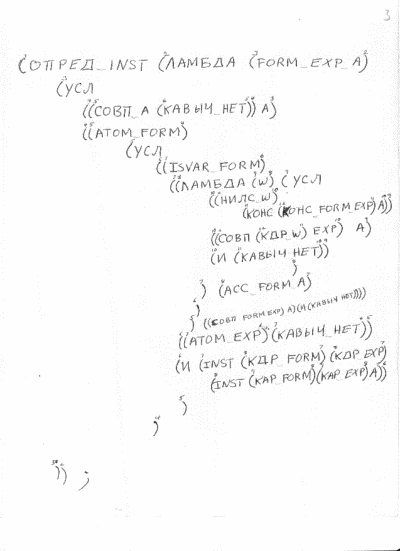 3
(ОПРЕД_INST (ЛАМБДА (FORM_EXP_A)
(УСЛ
((СОВП_A (КАВЫЧ_НЕТ)) A)
((АТОМ_FORM)
(УСЛ
((ISVAR_FORM)
((ЛАМБДА (W) (УСЛ
((НИЛС_W)
(КОНС (КОНС_FORM_EXP) A))
((СОВП (КДР_W) EXP) A)
(И (КАВЫЧ_НЕТ))
)
) (АСС_FORM_A)
)
) ((СОВП FORM EXP) A)(И (КАВЫЧ НЕТ))))
((АТОМ_EXP) (КАВЫЧ_НЕТ))
(И (INST (КДР_FORM) (КДР_EXP)
(INST (КАР_FORM)(КАР_EXP) A))
)
)
)) ;